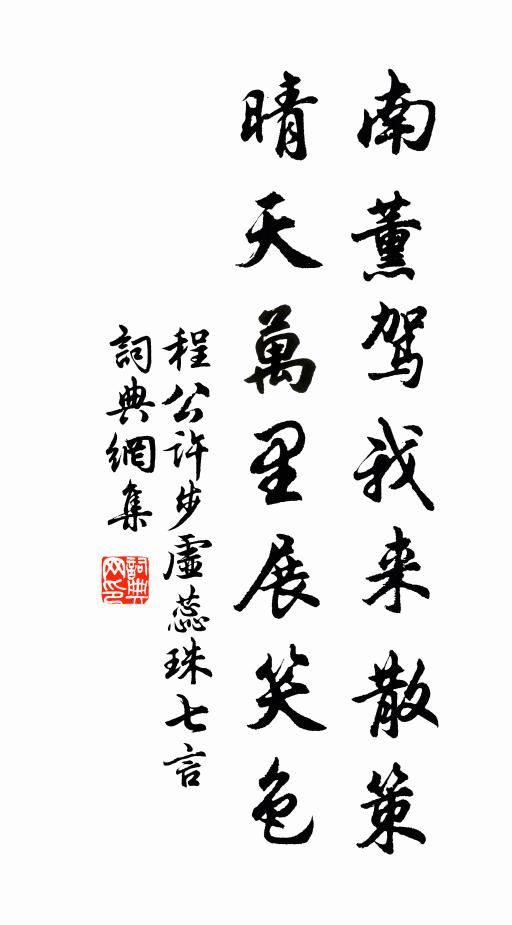 南薰駕我来散策
晴天萬里展笑色
程公許步虛蕊珠七言
詞典網集
詞典网印